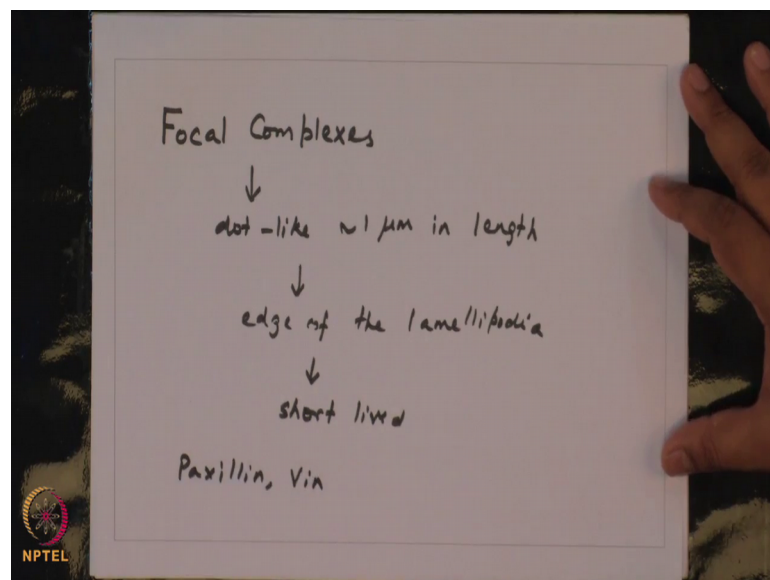 Focal Complexes
↓
dot-like ~1 μm in length
↓
edge of the lamellipodia
↓
short lived
Paxillin, Vin
NPTEL